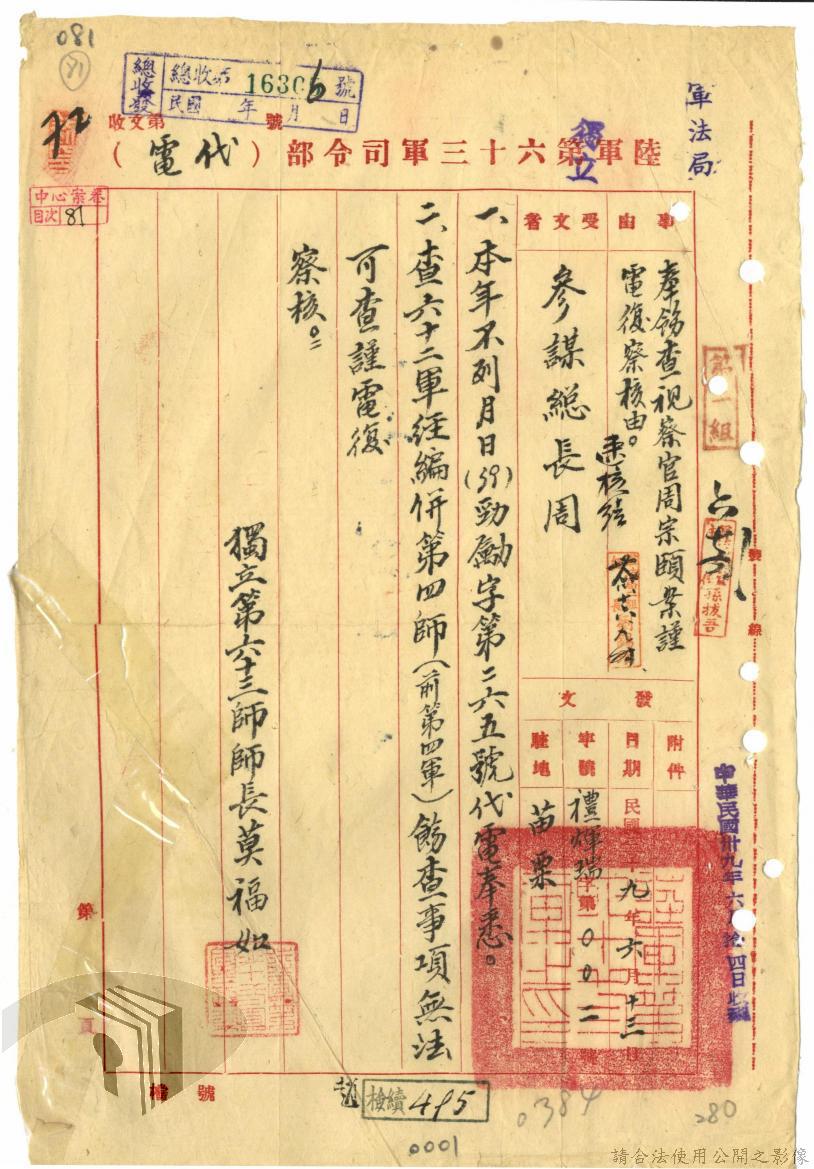 081
81
總收發
總收文 16306 號
民國 年 月 日
收文第 號
軍法局
陸軍獨立第六十三軍司令部(代電)
中心案卷
目次 81
事由
奉飭查視察官周宗頤案謹
電復察核由。
受文者
參謀総長周
速核結
第一組
發文
附件
日期 民國三十九年六月十三日
字號 禮煇瑞字第一00二號
駐地 苗栗
一、本年不列月日(39)勁勵字第二六五號代電奉悉。
二、查六十二軍経編併第四師(前第四軍)飭查事項無法
可查謹電復
察核。
獨立第六十三師師長莫福如
中華民國卅九年六月拾四日收到
裝
線
第 頁
檔號
檢續 495
0384
280
0001
請合法使用公開之影像